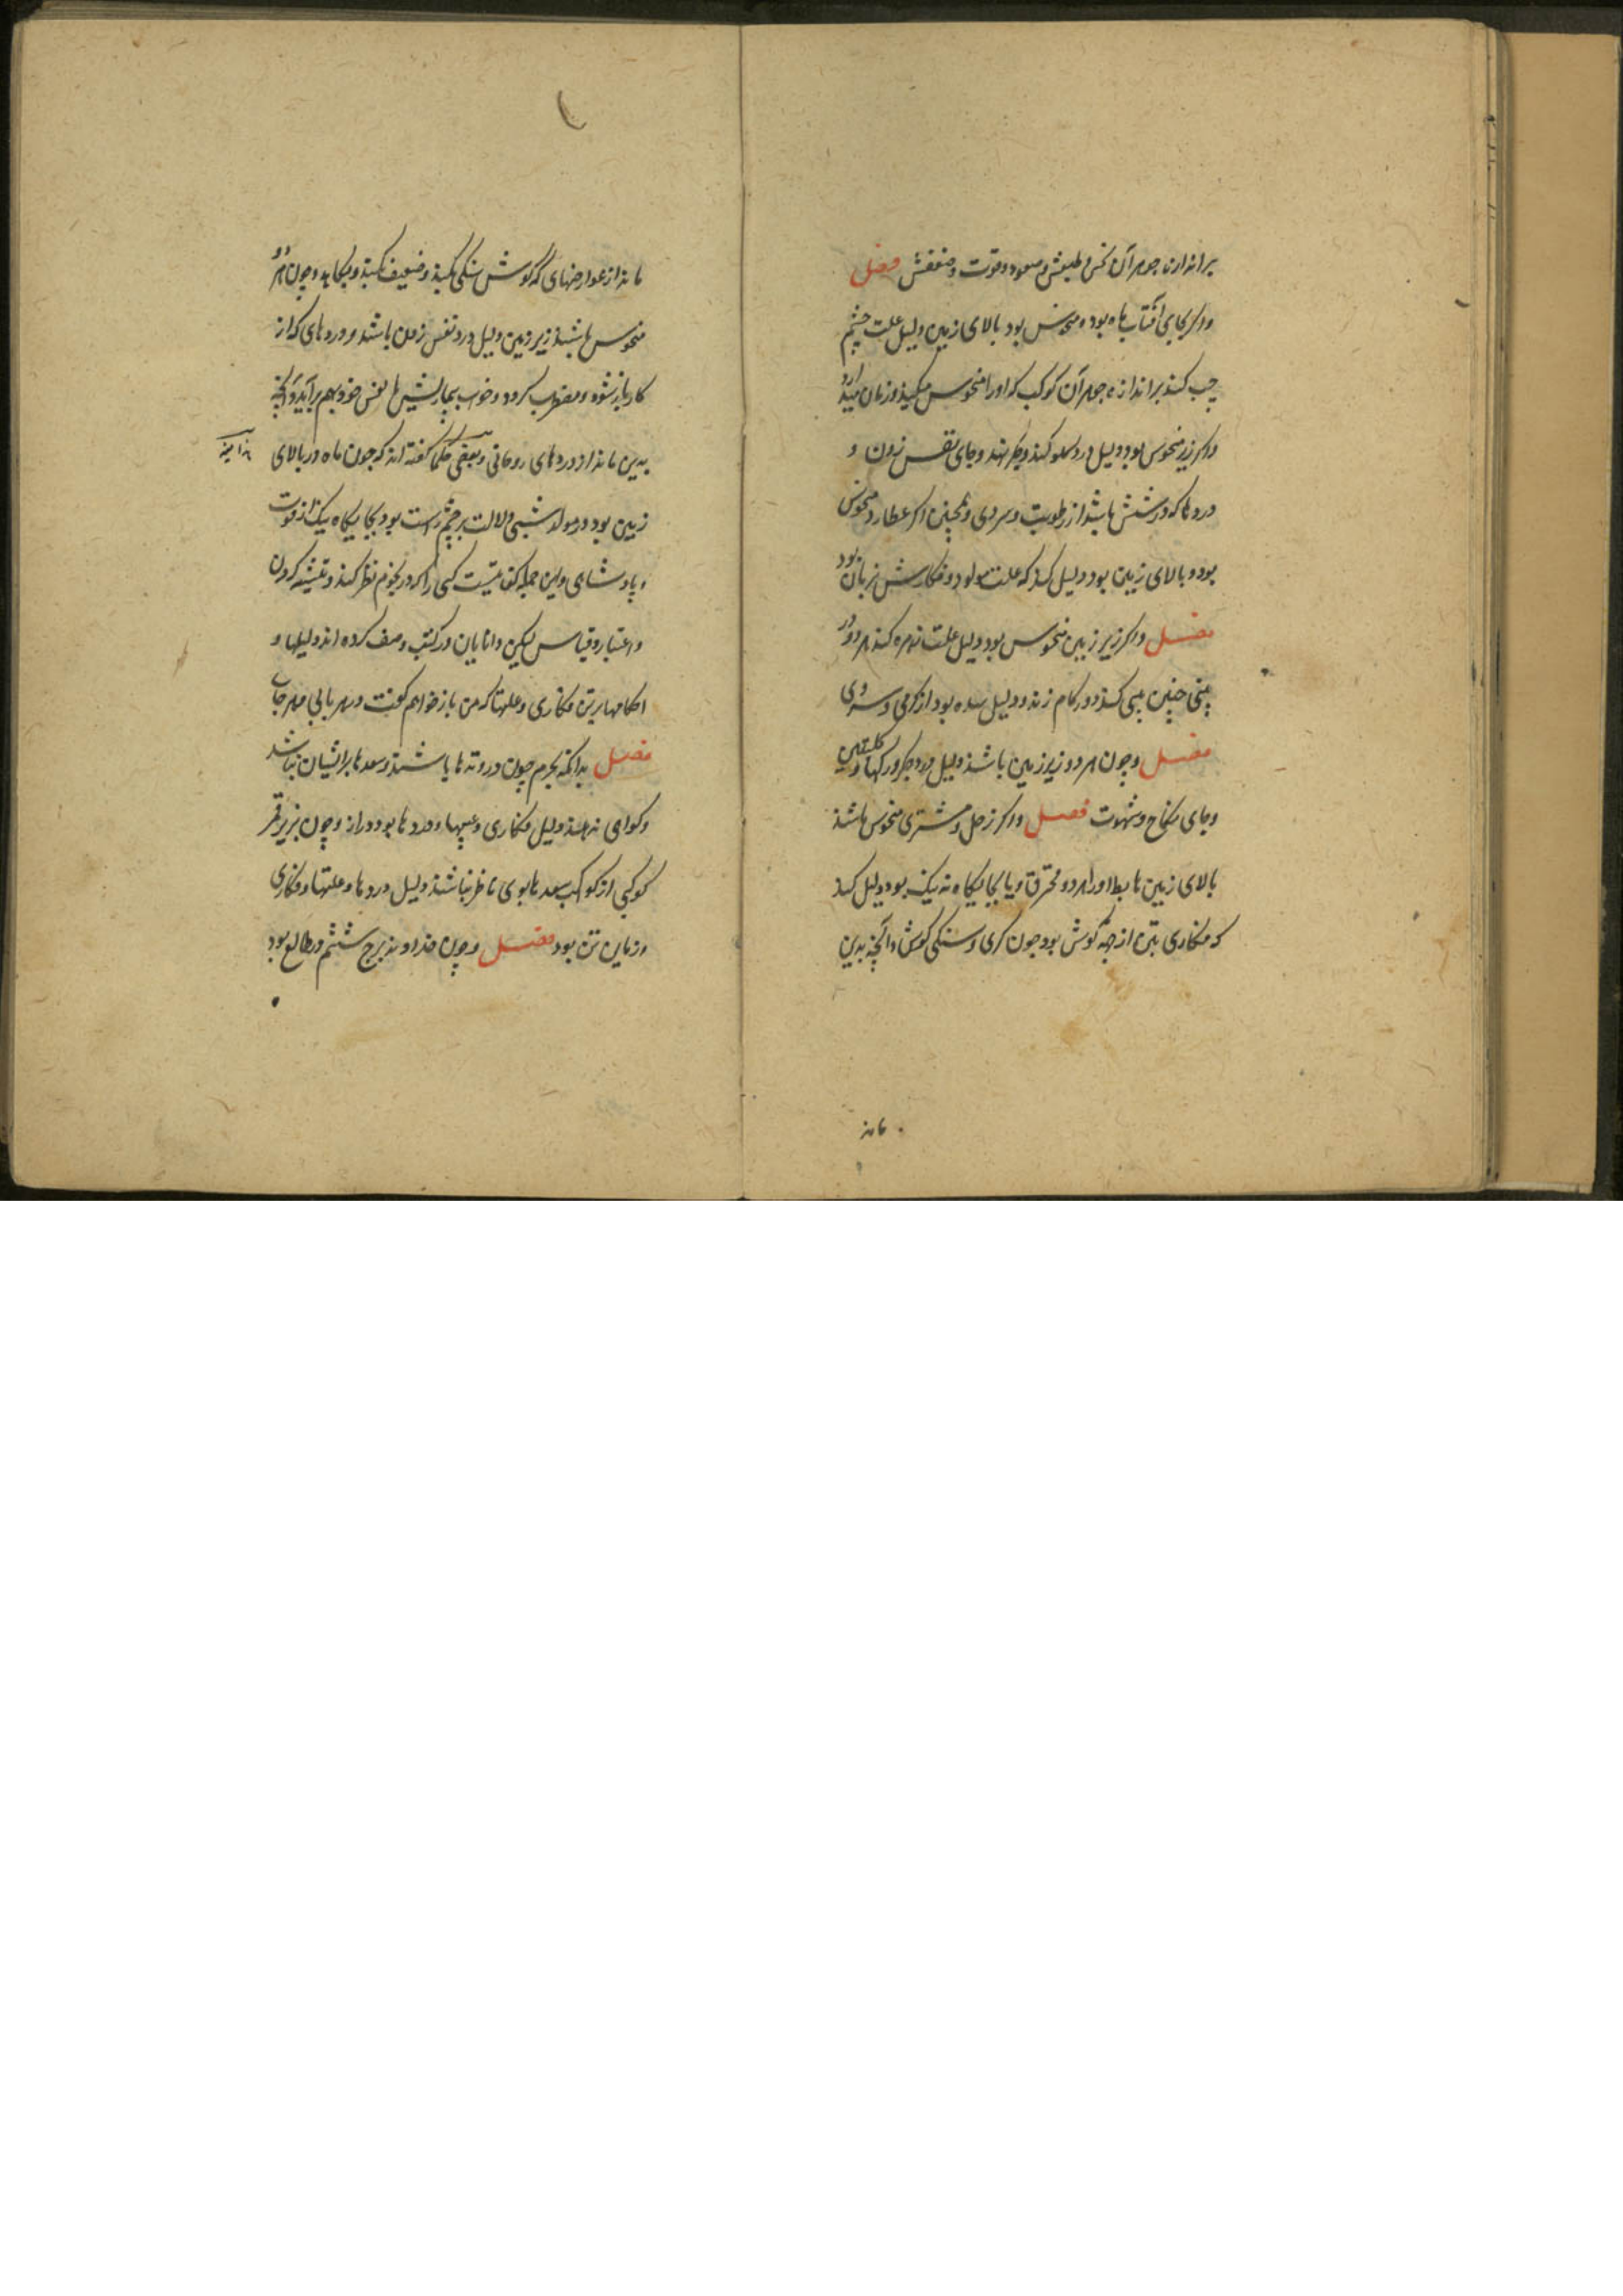 بر اندازه جوهر آن نحس و طبعش و صعود و قوت و ضعفش فصل
واکر بجای آفتاب ماه بود و منحوس بود بالای زمین دلیل علت چشم
چپ کند بر اندازه جوهر آن کوکب که او را منحوس میکند و زمان میدارد
واکر زیر منحوس بود دلیل درد کلو کند و جکر بند و جای نفس زدن و
دردها که در شش باشد از رطوبت و سردی و همچنین اکر عطارد منحوس
بود و بالای زمین بود دلیل کند که علت مولود و فکارش زبان بود
فصل واکر زیر زمین منحوس بود دلیل علت زهره کند
چنین کند و در کام زند و دلیل سده بود از کرمی و سردی
فصل و چون هر دو زیر زمین باشند دلیل درد جکر و رکها و کلیتین
و جای نکاح و شهوت فصل واکر زحل و مشتری منحوس باشند
بالای زمین هابط او راهرد و محترق و یا بجایکاه نه نیک بود دلیل کند
که فکاری تن از جهة کوش بود چون کری و سنکی کوش و آنچه بدین
ماند
ماند از عوارضهای که کوش سنکی کند و ضعیف کند و بکاهد و چون هر دو
منحوس باشند زیر زمین دلیل درد نفس زدن باشد و دردهای که از
کار باز شود و مضطرب کردد و خوب بیماریشها نفس خود بهم برآید و آنچه
بدین ماند از دردهای روحانی و بعضی حکما کفته اند که چون ماه در بالای
زمین بود در مولد شبی دلالت بر چشم راست بود بجایکاه نیک از قوت
و پادشاهی و این جمله کس نیست کسی را که در نجوم نظر کند و تفتیش کردن
و اعتبار و قیاس لیکن دانایان در کتب وصف کرده اند دلیلها و
احکامها بر تن فکاری و علتها که من باز خواهم کفت در هر بابی
فصل بدانکه نجوم چون در وتدها باشند و سعدها بر ایشان نباشد
و کواهی ندهند دلیل فکاری و عیبها و دردها بود دراز و چون بزیر قمر
کوکبی از کوکب سعدها بوی ناظر نباشند دلیل دردها و علتها و فکاری
و زمانین تن بود فصل و چون خداوند برج ششم در طالع بود